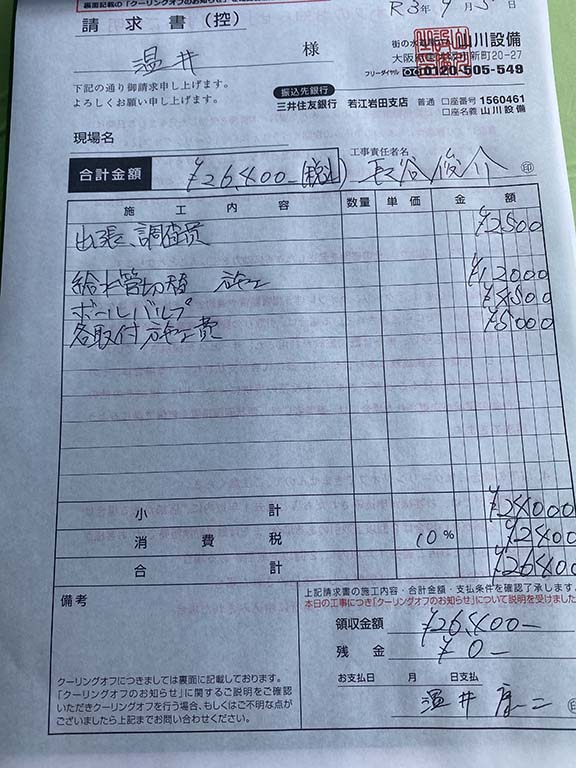 裏面記載の「クーリングオフのお知らせ」を
R3年 9月 5日
請求書(控)
街の水
山川設備
新町20-27
温井 様
フリーダイヤル 0120-505-549
下記の通り御請求申し上げます。
よろしくお願い申し上げます。
振込先銀行
三井住友銀行 若江岩田支店 普通 口座番号 1560461
口座名義 山川設備
現場名
工事責任者名
合計金額 ¥26,400-(税込)
長谷 俊介 印
施工内容 数量 単価 金額
出張、調査費 ¥2,500
給水管切替 施工 ¥12000
ボールバルブ ¥4,500
各取付施工費 ¥5000
小計 ¥24000
消費税 10% ¥2400
合計 ¥26400
備考
上記請求書の施工内容・合計金額・支払条件を確認了承します。
本日の工事につき「クーリングオフのお知らせ」について説明を受けました
領収金額 ¥26,400-
残金 ¥0-
お支払日 月 日支払
クーリングオフにつきましては裏面に記載しております。
「クーリングオフのお知らせ」に関するご説明をご確認
いただきクーリングオフを行う場合、もしくはご不明な点が
ございましたら上記までお問い合わせください。
温井
印